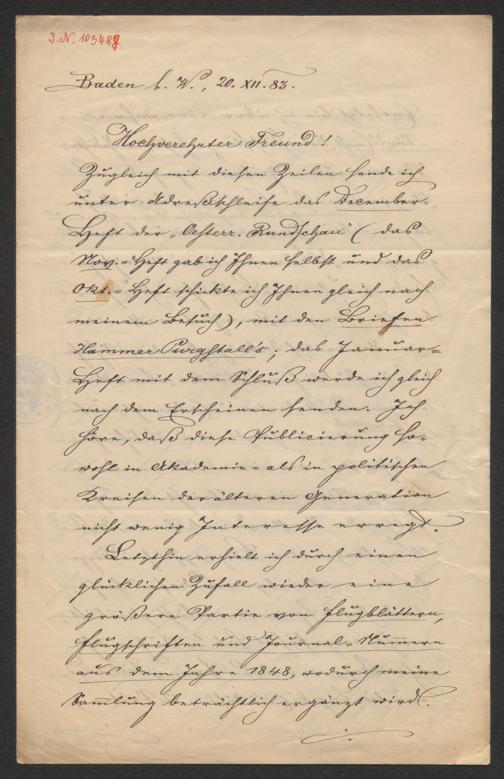 J.N. 103487
Baden b. W., 20. XII. 83.
Hochverehrter Freund!
Zugleich mit diesen Zeilen sende ich
unter Adreßschleife das December-
Heft der „Oesterr. Rundschau (das
Nov.-Heft gab ich Ihnen selbst und das
Okt.-Heft schickte ich Ihnen gleich nach
meinem Besuch), mit den Briefen
Hammer Purgstall's; das Januar-
Heft mit dem Schluß werde ich gleich
nach dem Erscheinen senden. Ich
höre, daß diese Publicierung so-
wohl in Akademie- als in politischen
Kreisen der älteren Generation
nicht wenig Interesse erregt.
Letzthin erhielt ich durch einen
glücklichen Zufall wieder eine
größere Partie von Flugblättern,
Flugschriften und Journal-Nummern
aus dem Jahre 1848, wodurch meine
Sammlung beträchtlich ergänzt wird.